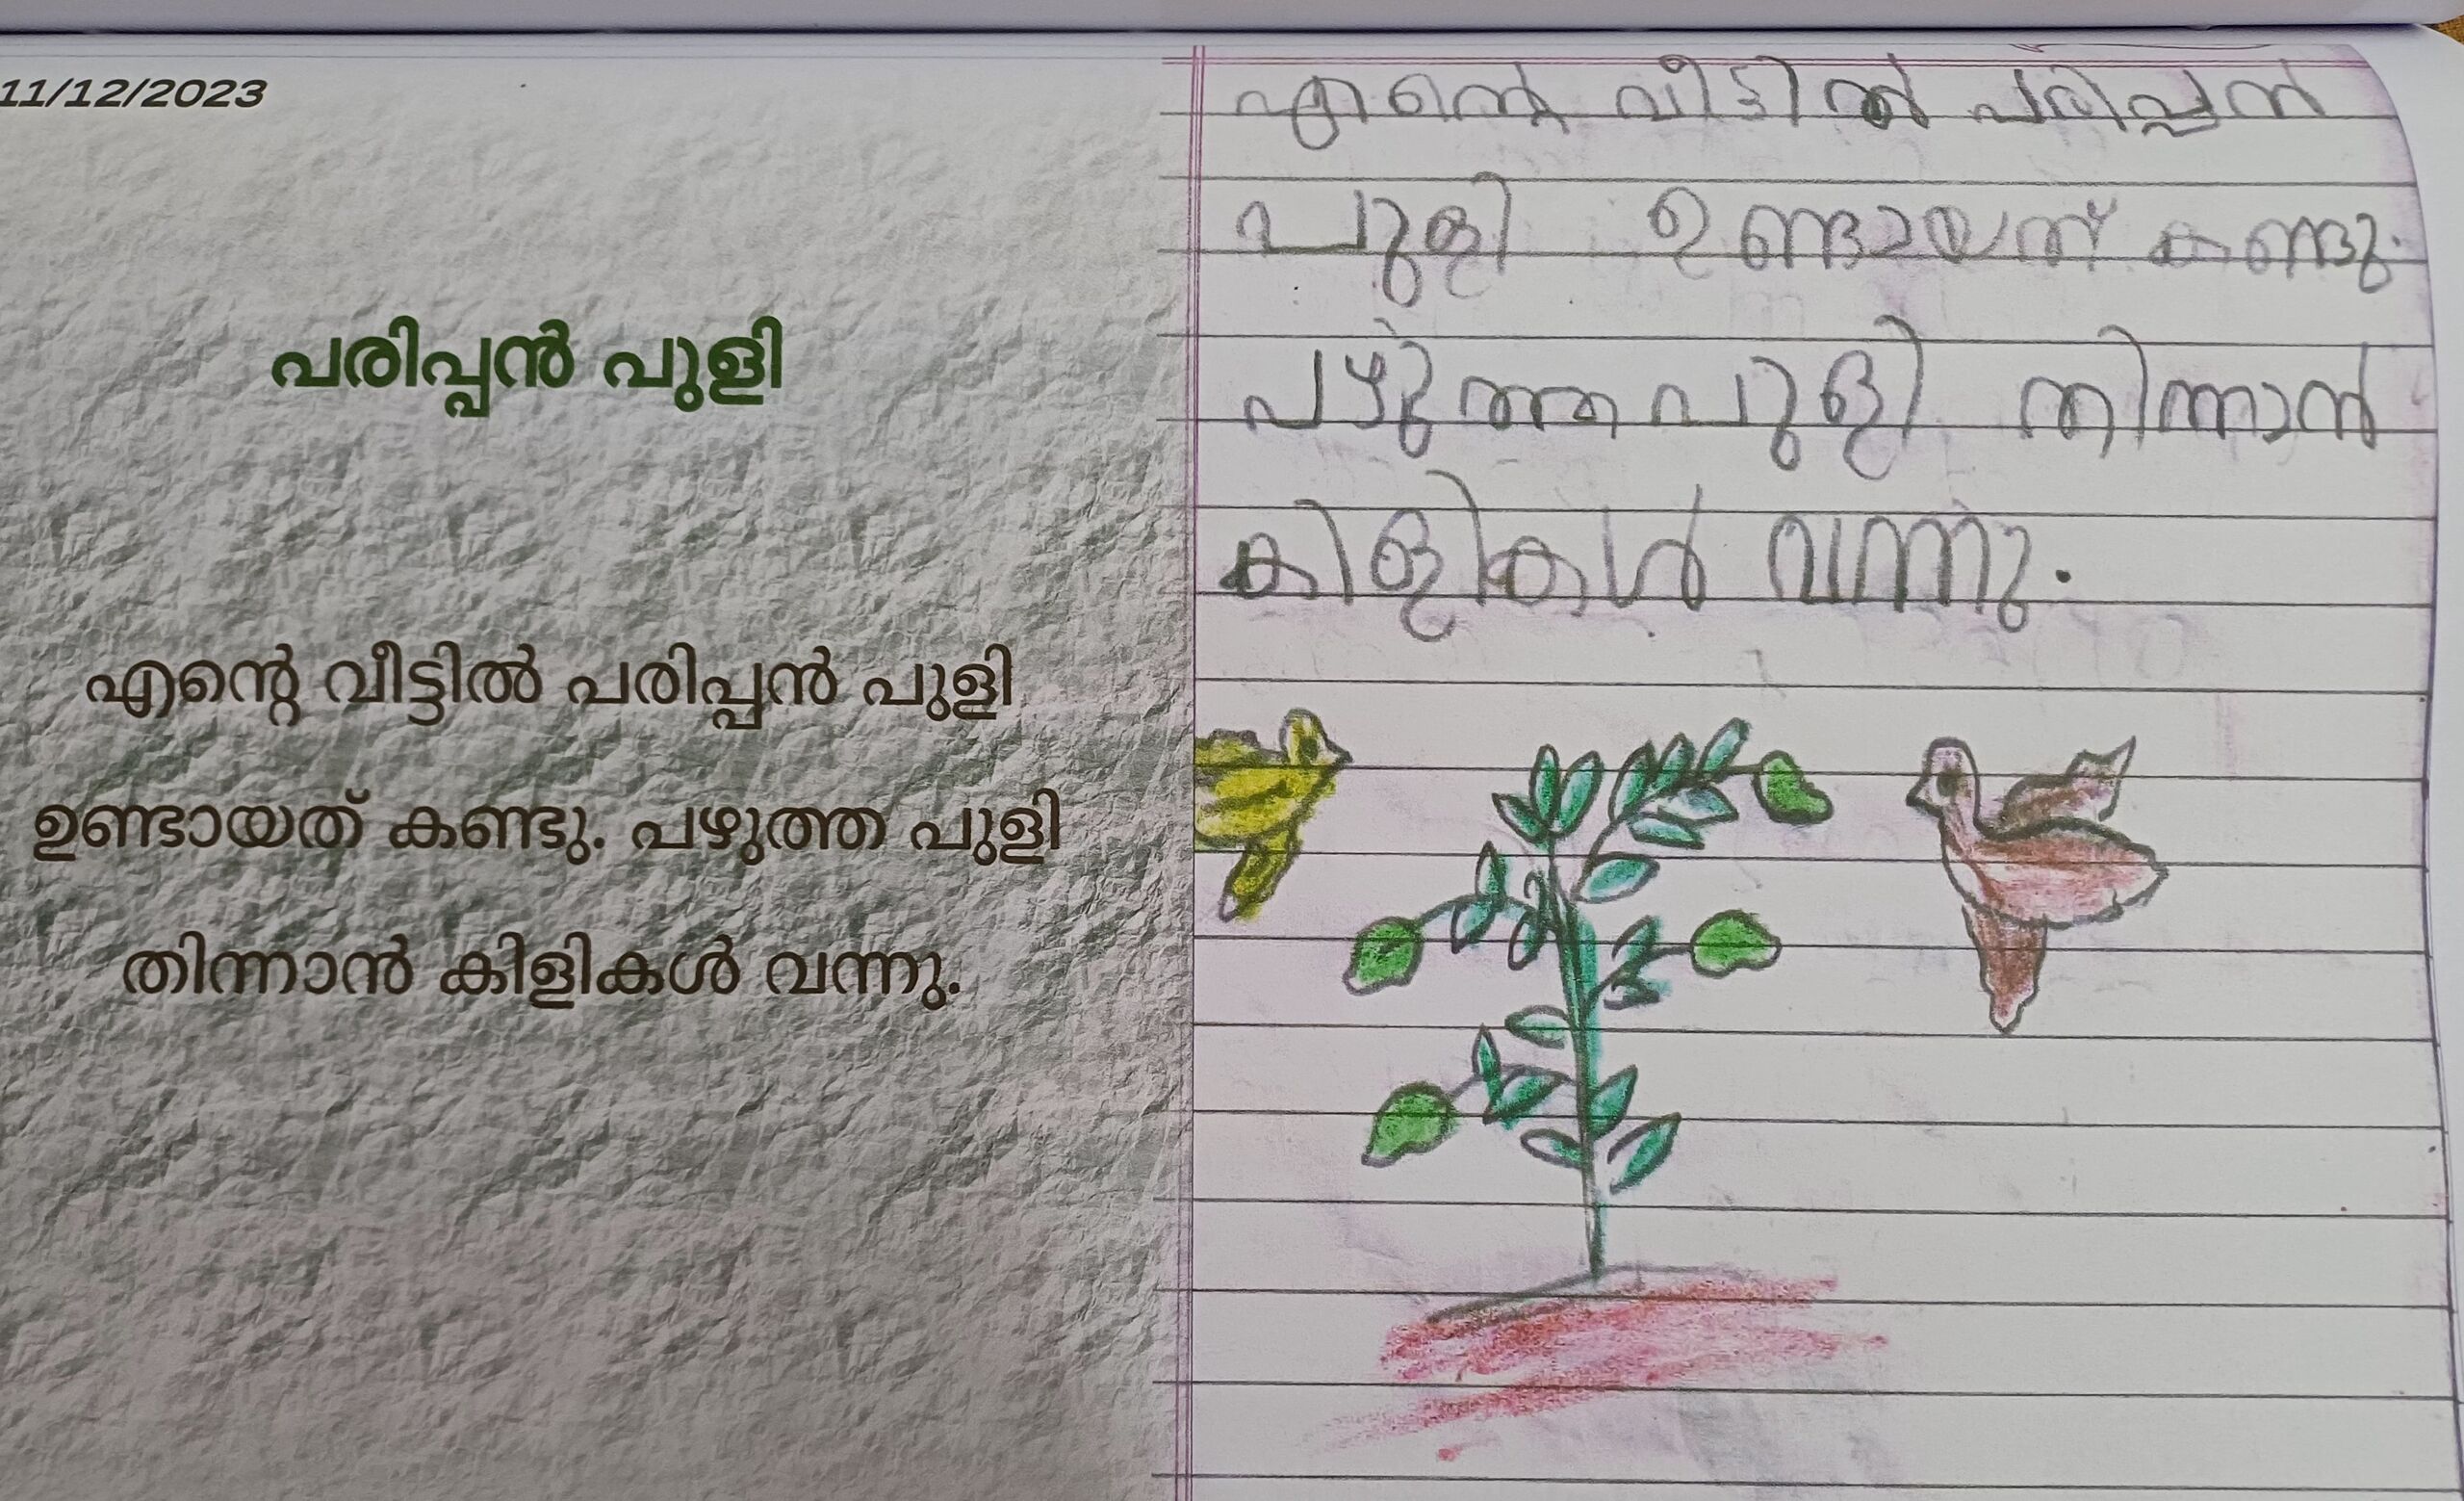 11/12/2023
പരിപ്പൻ പുളി
എന്റെ വീട്ടിൽ പരിപ്പൻ പുളി
ഉണ്ടായത് കണ്ടു. പഴുത്ത പുളി
തിന്നാൻ കിളികൾ വന്നു.
എന്റെ വീട്ടിൽ പരിപ്പൻ
പുളി ഉണ്ടായത് കണ്ടു.
പഴുത്ത പുളി തിന്നാൻ
കിളികൾ വന്നു.